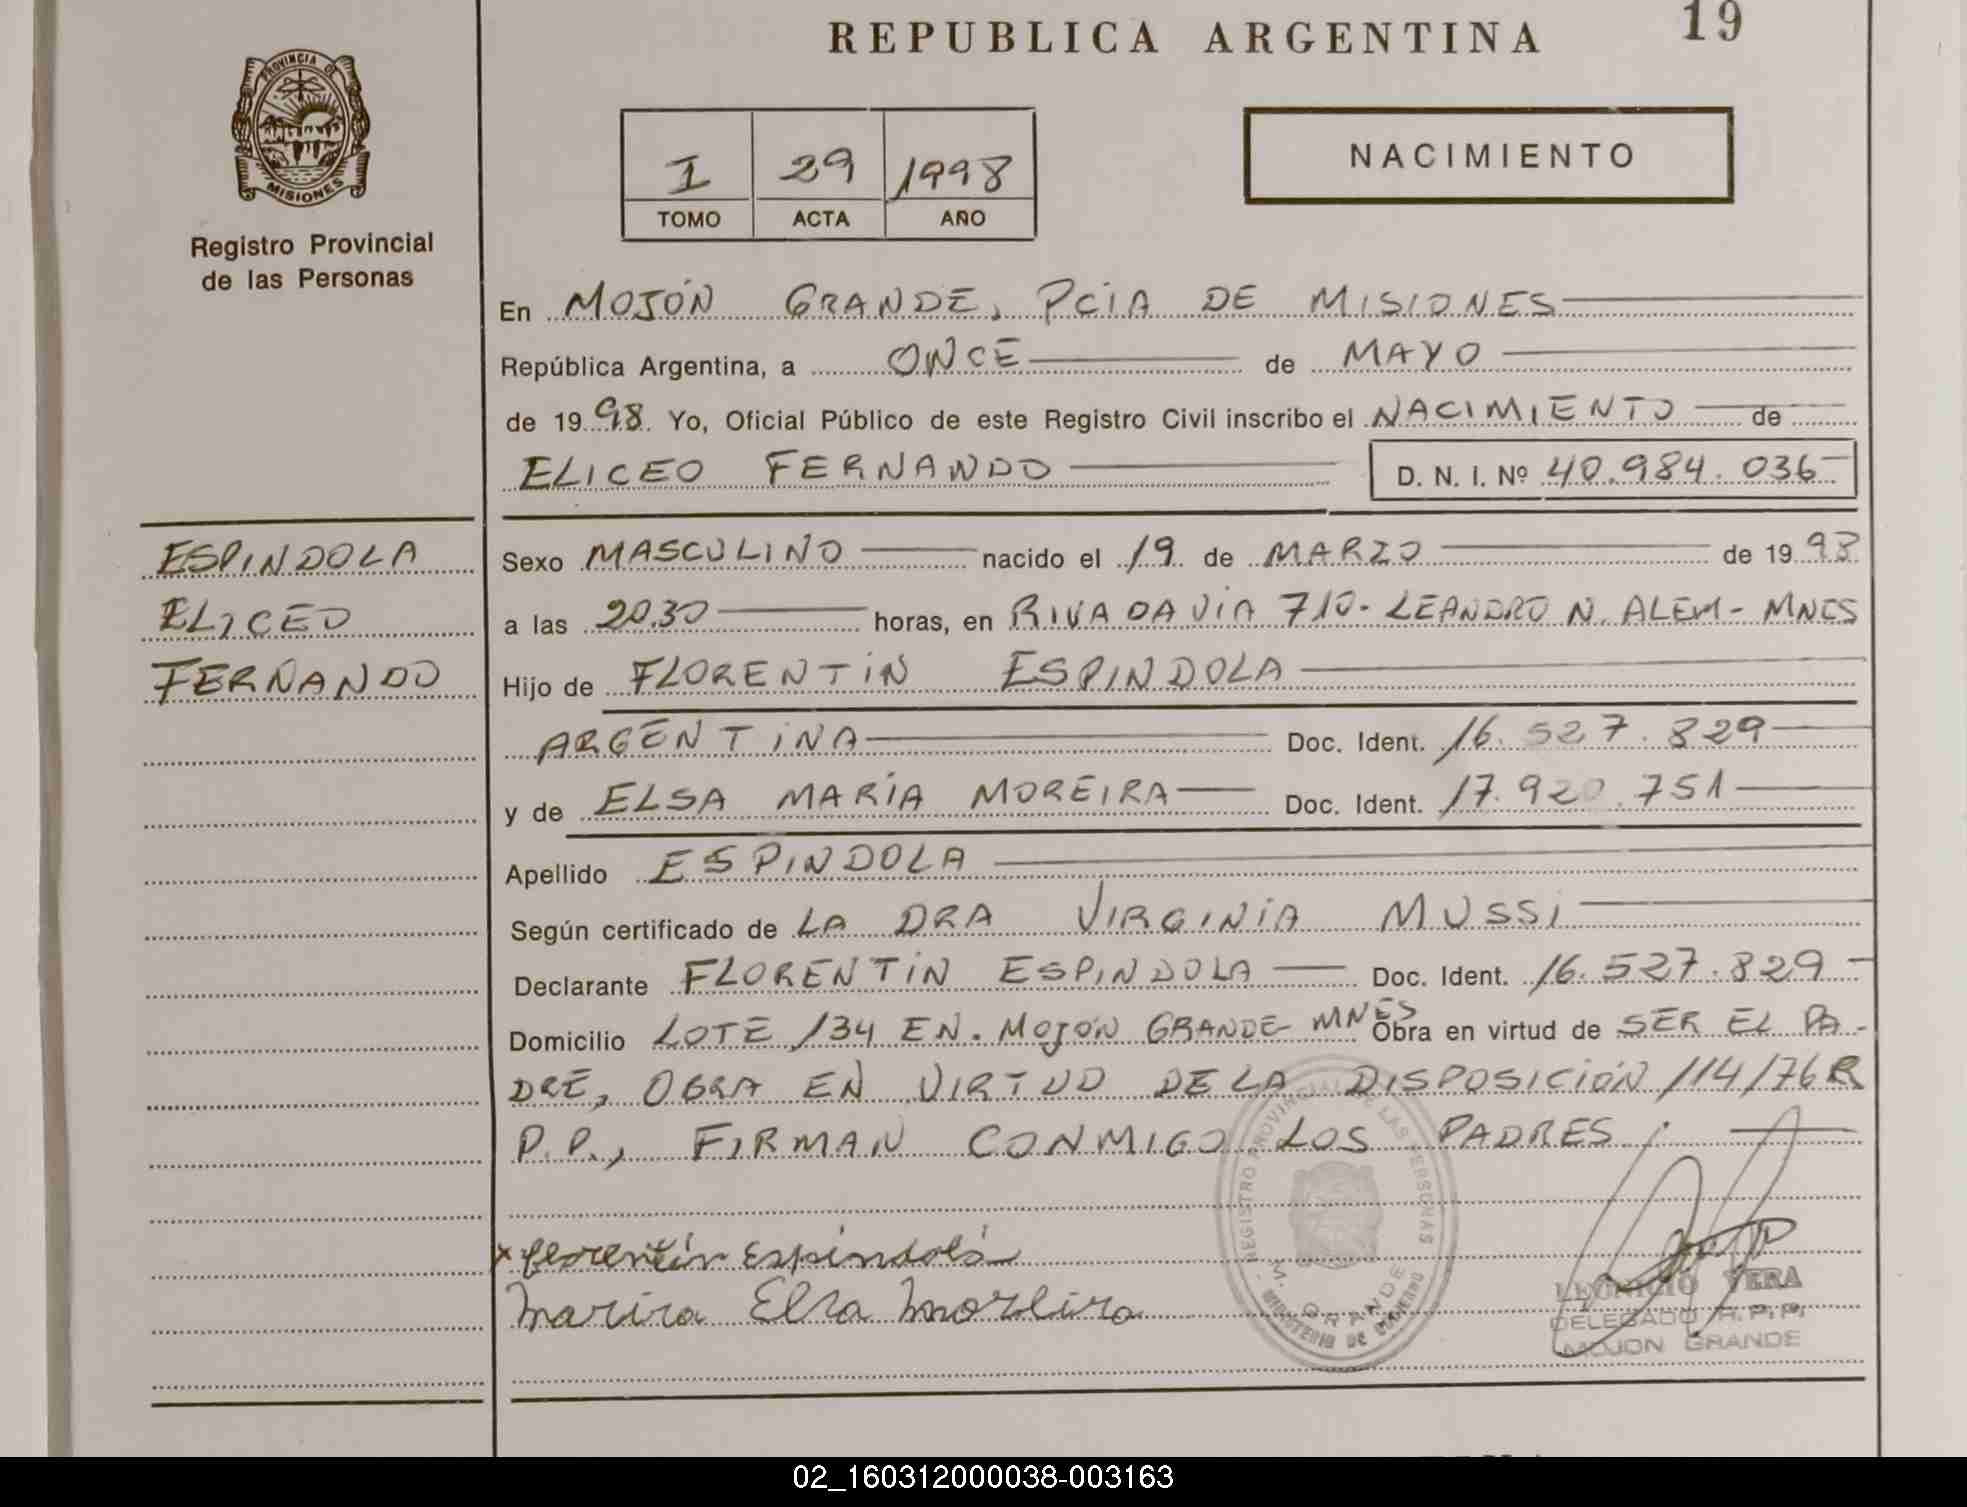 REPUBLICA ARGENTINA
19
PROVINCIA DE
MISIONES
Registro Provincial
de las Personas
I 29 1998
TOMO ACTA AÑO
NACIMIENTO
En MOJÓN GRANDE, PCIA DE MISIONES
República Argentina, a ONCE de MAYO
de 1998. Yo, Oficial Público de este Registro Civil inscribo el NACIMIENTO de
ELICEO FERNANDO D. N. I. Nº 40.984.036
ESPINDOLA
ELICEO
FERNANDO
Sexo MASCULINO nacido el 19 de MARZO de 1998
a las 20.30 horas, en RIVADAVIA 710- LEANDRO N. ALEM- MNES
Hijo de FLORENTIN ESPINDOLA
ARGENTINA Doc. Ident. 16.527.829
y de ELSA MARÍA MOREIRA Doc. Ident. 17.920.751
Apellido ESPINDOLA
Según certificado de LA DRA VIRGINIA MUSSI
Declarante FLORENTIN ESPINDOLA Doc. Ident. 16.527.829
Domicilio LOTE 134 EN. MOJÓN GRANDE- MNES Obra en virtud de SER EL PA-
DRE, OBRA EN VIRTUD DE LA DISPOSICIÓN 114/76 R
P.P., FIRMAN CONMIGO LOS PADRES.
REGISTRO PROVINCIAL DE LAS PERSONAS
M. GRANDE
MINISTERIO DE GOBIERNO
x florentín Espíndolá
Marira Elsa Morleira
LEONICIO VERA
DELEGADO R.P.P.
MOJON GRANDE
02_160312000038-003163